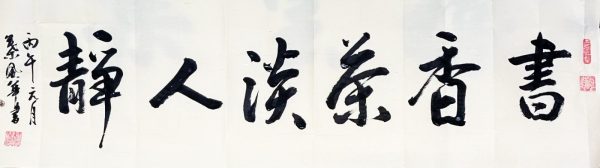 書香茶淡人靜
丙午元月